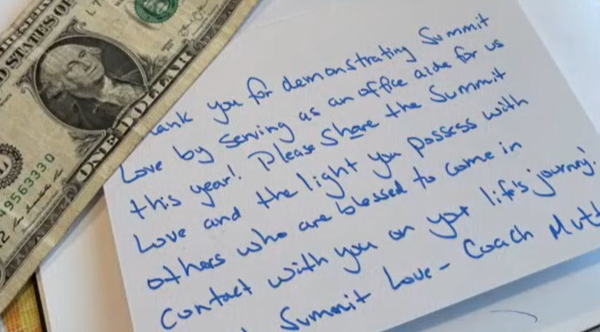 STATES OF
ONE DOLLAR
49563330
ank you for demonstrating Summit
Love by serving as an office aide for us
this year! Please Share the Summit
Love and the light you possess with
others who are blessed to come in
contact with you on your life's journey!
Summit Love - Coach Mutt